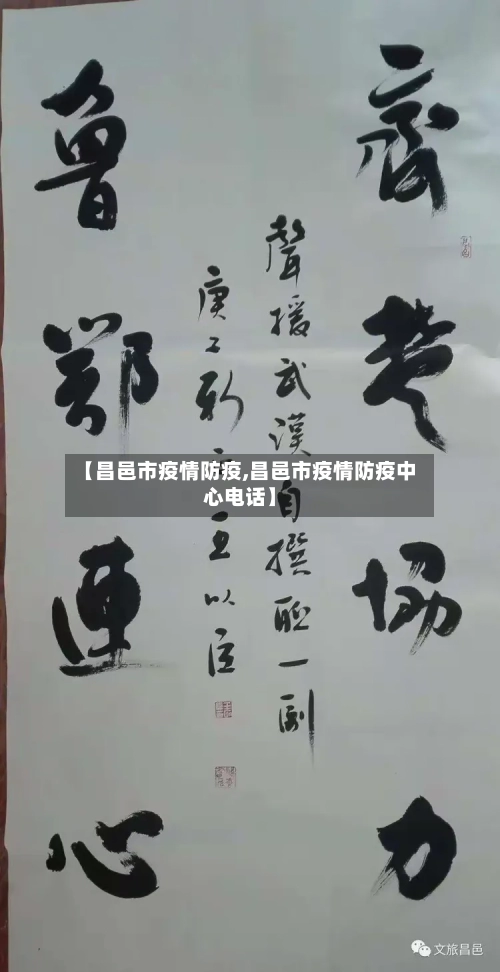 齊楚協力
聲援武漢自撰聯一副
庚子新 王以臣
魯鄂連心
【昌邑市疫情防疫,昌邑市疫情防疫中
心电话】
文旅昌邑